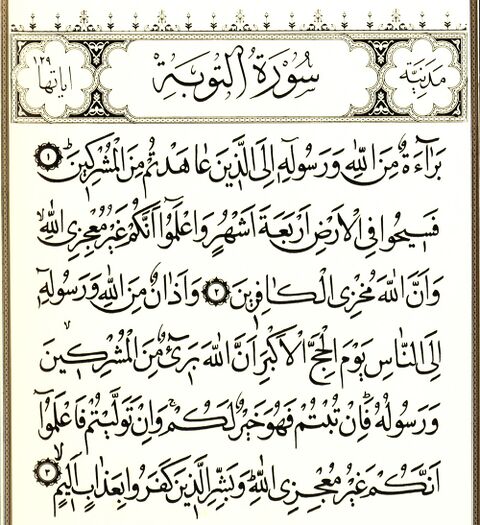 مدنية سورة التوبة اياتها ١٢٩
بَرَٓاءَةٌ مِنَ اللّٰهِ وَرَسُولِه۪ٓ اِلَى الَّذ۪ينَ عَاهَدْتُمْ مِنَ الْمُشْرِك۪ينَ ١
فَس۪يحُوا فِي الْاَرْضِ اَرْبَعَةَ اَشْهُرٍ وَاعْلَمُٓوا اَنَّكُمْ غَيْرُ مُعْجِزِي اللّٰهِ
وَاَنَّ اللّٰهَ مُخْزِي الْكَافِر۪ينَ ٢ وَاَذَانٌ مِنَ اللّٰهِ وَرَسُولِه۪ٓ
اِلَى النَّاسِ يَوْمَ الْحَجِّ الْاَكْبَرِ اَنَّ اللّٰهَ بَر۪ٓيءٌ مِنَ الْمُشْرِك۪ينَ
وَرَسُولُهُ فَاِنْ تُبْتُمْ فَهُوَ خَيْرٌ لَكُمْ وَاِنْ تَوَلَّيْتُمْ فَاعْلَمُٓوا
اَنَّكُمْ غَيْرُ مُعْجِزِي اللّٰهِ وَبَشِّرِ الَّذ۪ينَ كَفَرُوا بِعَذَابٍ اَل۪يمٍ ٣